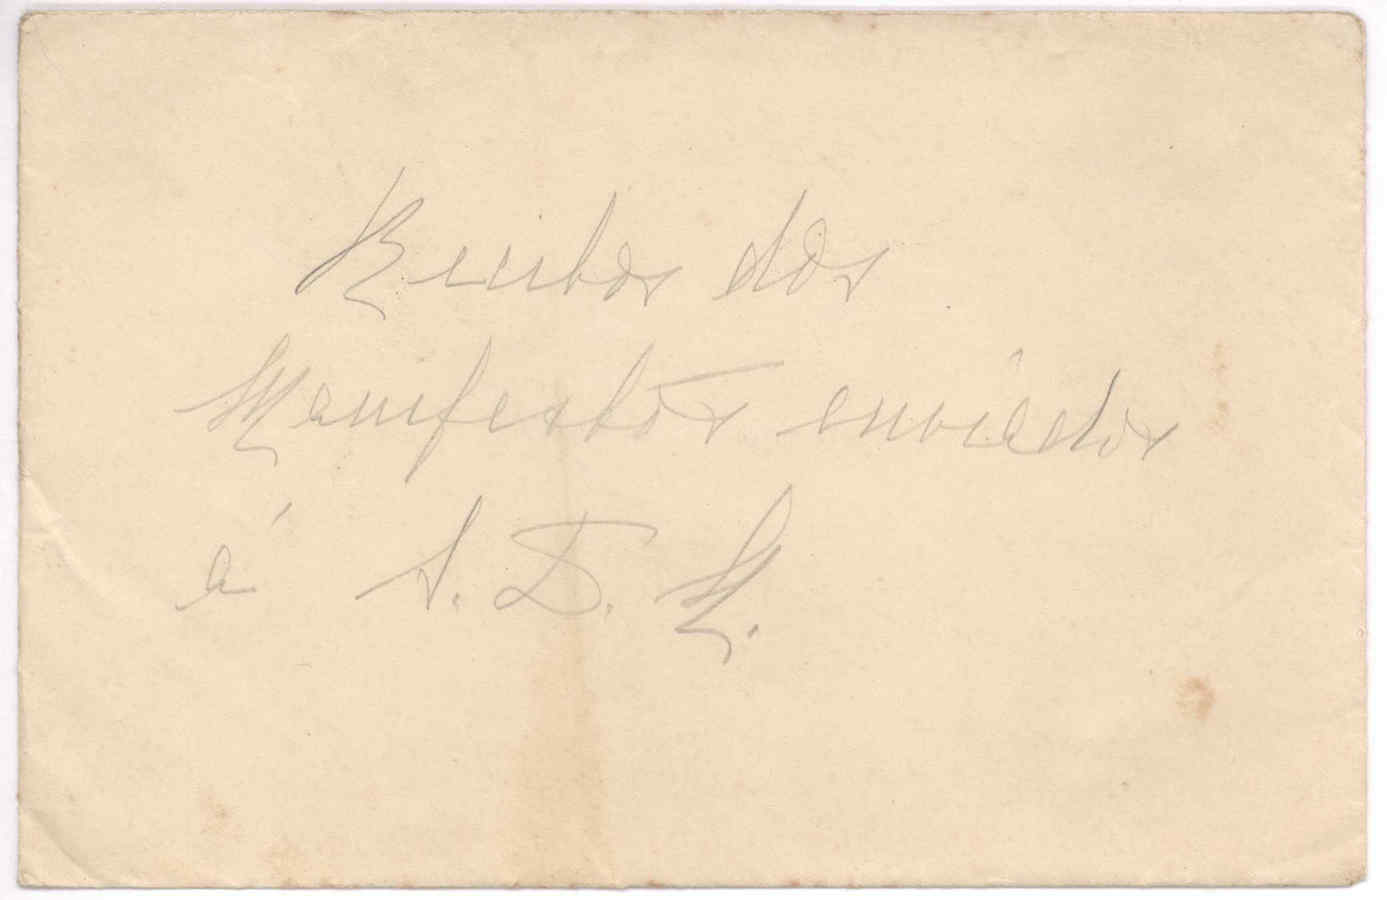 Recibos dos
Manifestos enviados
á S. D. N.